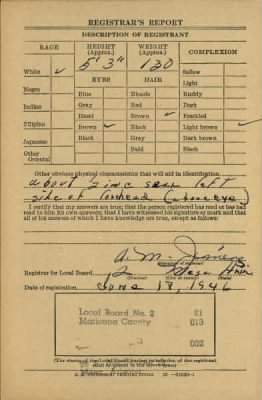 REGISTRAR'S REPORT
DESCRIPTION OF REGISTRANT
RACE HEIGHT (Approx.) WEIGHT (Approx.) COMPLEXION
White ✓ 5' 3" 130 Sallow
EYES HAIR Light
Negro Blue Blonde Ruddy
Indian Gray Red Dark
Hazel Brown ✓ Freckled
Filipino Brown ✓ Black Light brown ✓
Japanese Black Gray Dark brown
Other Oriental Bald Black
Other obvious physical characteristics that will aid in identification
about 2 inc scar left
side of forehead (above eye)
I certify that my answers are true; that the person registered has read or has had
read to him his own answers; that I have witnessed his signature or mark and that
all of his answers of which I have knowledge are true, except as follows:
A. M.
Registrar for Local Board 2 Mesa Ariz
Date of registration June 18, 1946
Local Board No. 2 81
Maricopa County 013
002
(The stamp of the Local Board having jurisdiction of the registrant
shall be placed in the above space)
U. S. GOVERNMENT PRINTING OFFICE